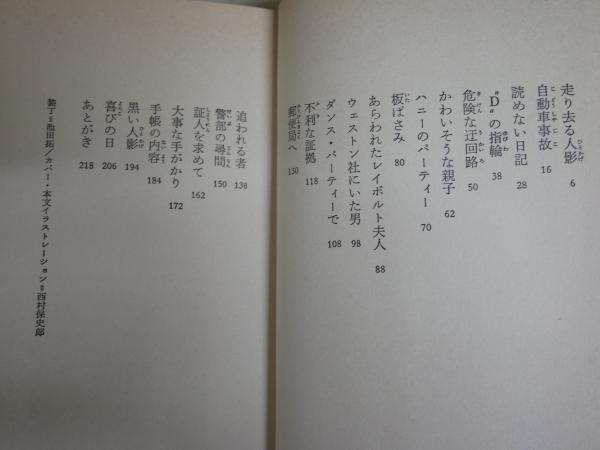 走り去る人影 6
自動車事故 16
読めない日記 28
"D"の指輪 38
危険な迂回路 50
かわいそうな親子 62
ハニーのパーティー 70
板ばさみ 80
あらわれたレイボルト夫人 88
ウェストン社にいた男 98
ダンス・パーティーで 108
不利な証拠 118
郵便局へ 130
追われる者 138
警部の尋問 150
証人を求めて 162
大事な手がかり 172
手帳の内容 184
黒い人影 194
喜びの日 206
あとがき 218
装丁=池田拓/カバー・本文イラストレーション=西村保史郎